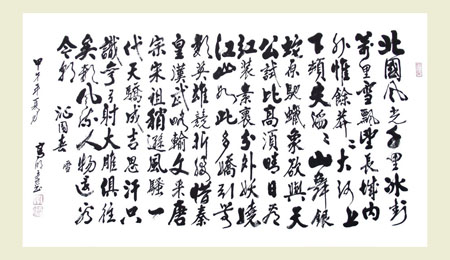 北國風光千里冰封
萬里雪飄望長城內
外惟餘莽〻大河上
下頓失滔〻山舞銀
蛇原馳蠟象欲與天
公試比高須晴日看
紅裝素裹分外妖嬈
江山如此多嬌引無
數英雄競折腰惜秦
皇漢武略輸文采唐
宗宋祖稍遜風騷一
代天驕成吉思汗只
識彎弓射大雕俱往
矣數風流人物還看
今朝 沁園春 雪
甲午年夏月